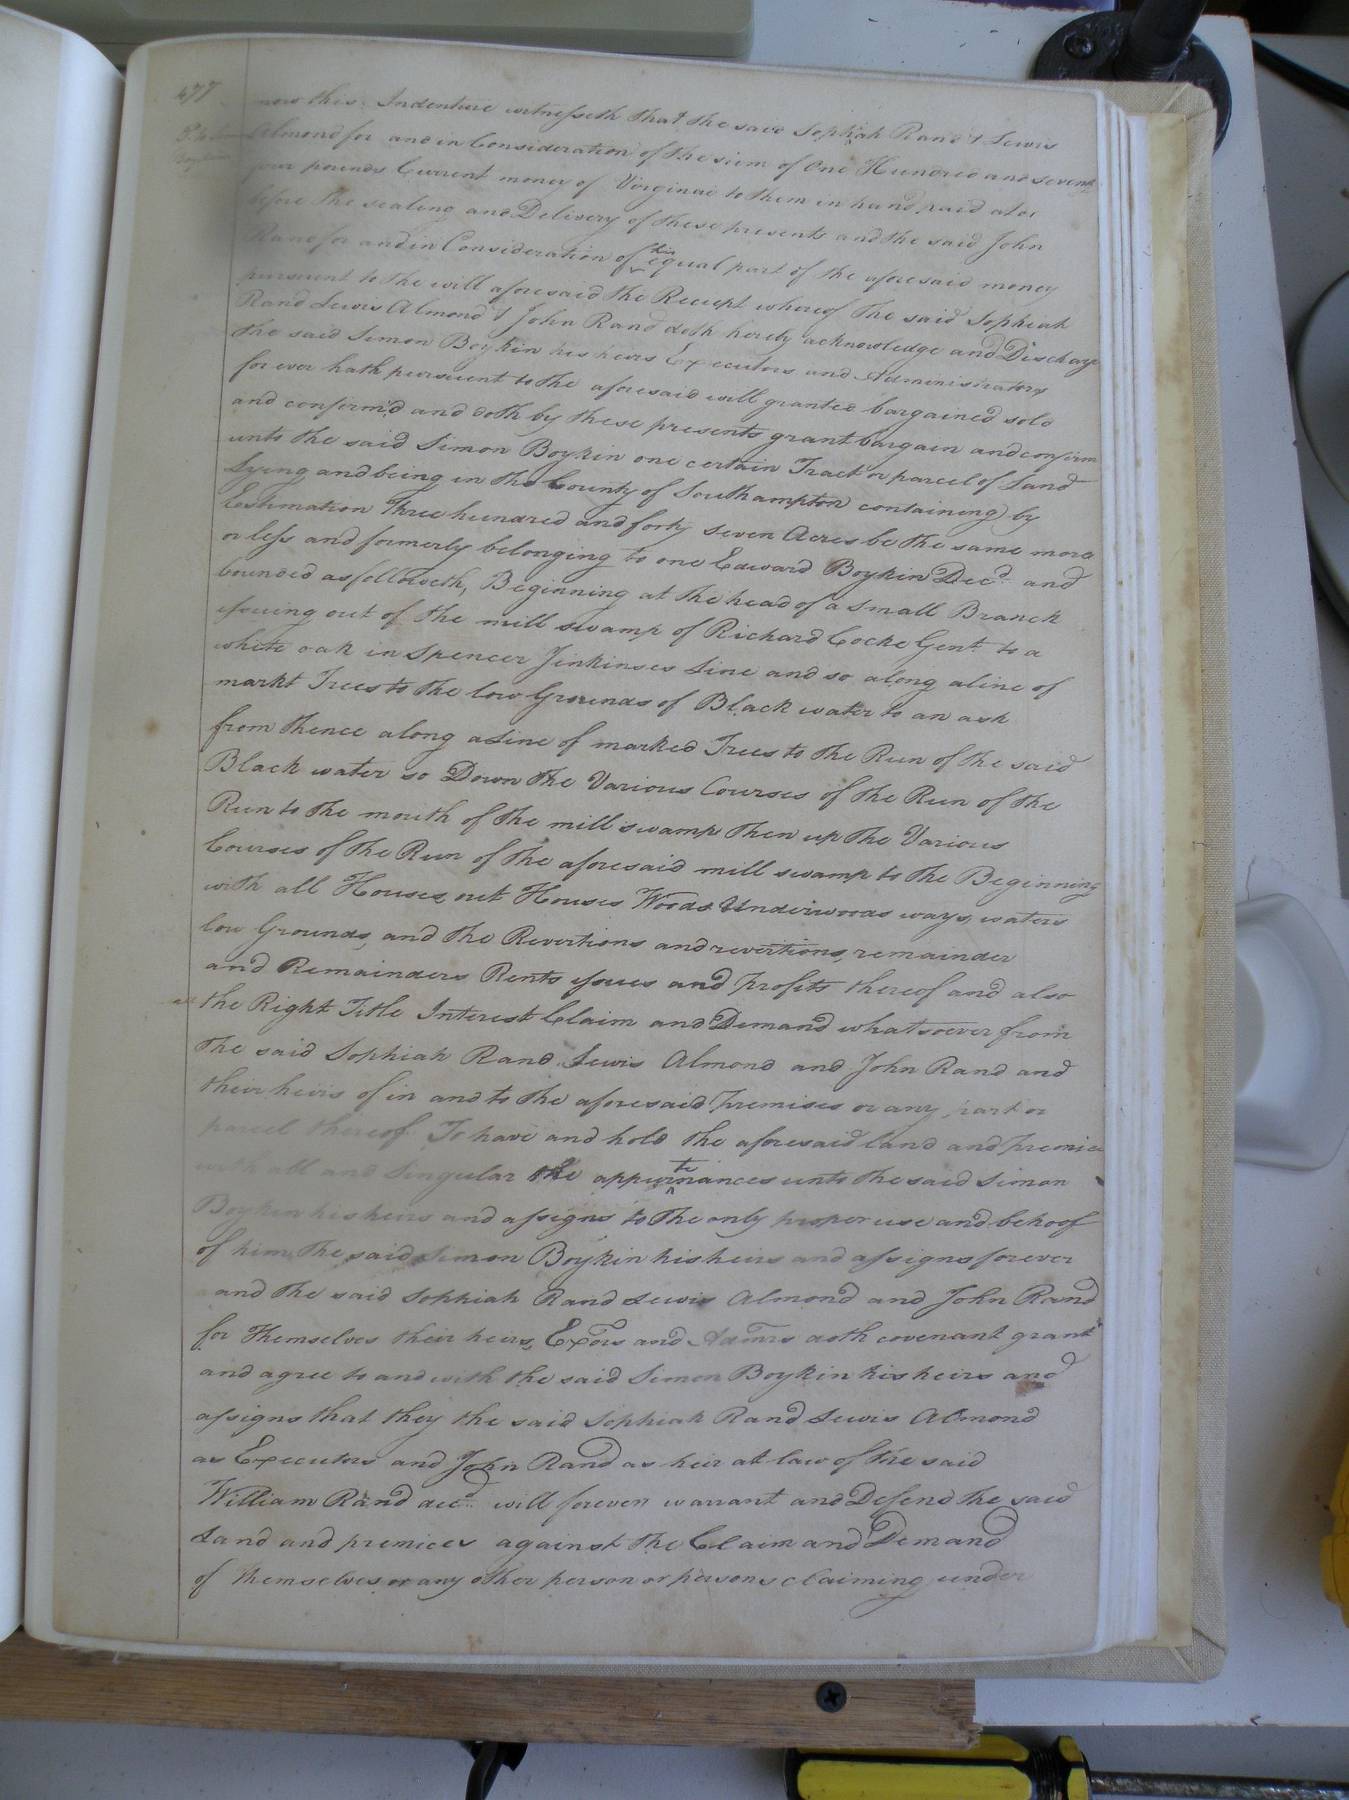 477
now this Indenture witnesseth that the said Sophiah Rand & Lewis
Almond for and in Consideration of the sum of One Hundred and seventy
four pounds Current money of Virginia to them in hand paid at or
before the sealing and Delivery of these presents and the said John
Rand for and in Consideration of his equal part of the aforesaid money
pursuent to the will aforesaid the Receipt whereof the said Sophiah
Rand Lewis Almond & John Rand doth hereby acknowledge and Discharge
the said Simon Boykin his heirs Executors and Administrators
for ever hath pursuent to the aforesaid will granted bargained sold
and confirm'd and doth by these presents grant bargain and confirm
unto the said Simon Boykin one certain Tract or parcel of Land
Lying and being in the County of Southampton containing by
Estimation Three hundred and forty seven Acres be the same more
or less and formerly belonging to one Edward Boykin Decd. and
bounded as followeth, Beginning at the head of a small Branch
issuing out of the mill swamp of Richard Cocke Gent. to a
white oak in Spencer Jinkinses Line and so along a line of
markt Trees to the low Grounds of Black water to an ash
from thence along a Line of marked Trees to the Run of the said
Black water so Down the Various Courses of the Run of the
Run to the mouth of the mill swamp then up the Various
Courses of the Run of the aforesaid mill swamp to the Beginning
with all Houses, out Houses Woods Underwoods ways, waters
low Grounds, and the Revertions and revertions, remainder
and Remainders Rents issues and profits thereof and also
all the Right Title Interest Claim and Demand whatsoever from
the said Sophiah Rand Lewis Almond and John Rand and
their heirs of in and to the aforesaid premises or any part or
parcel thereof To have and hold the aforesaid land and premices
with all and Singular the appurtenances unto the said Simon
Boykin his heirs and assigns to the only proper use and behoof
of him the said Simon Boykin his heirs and assigns forever
and the said Sophiah Rand Lewis Almond and John Rand
for themselves their heirs, Exors and Admrs doth covenant grant
and agree to and with the said Simon Boykin his heirs and
assigns that they the said Sophiah Rand Lewis Almond
as Executors and John Rand as heir at law of the said
William Rand decd. will forever warrant and Defend the said
Land and premices against the Claim and Demand
of themselves or any other person or persons claiming under